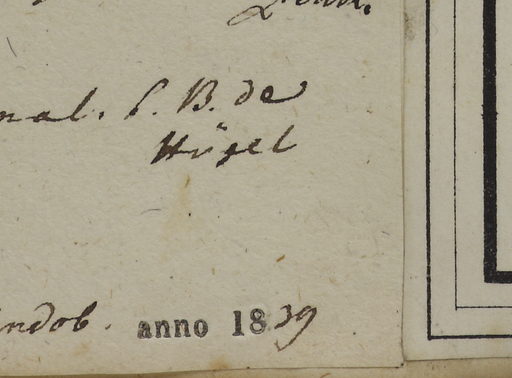 nal. C. B. de
Hügel
indob. anno 1839